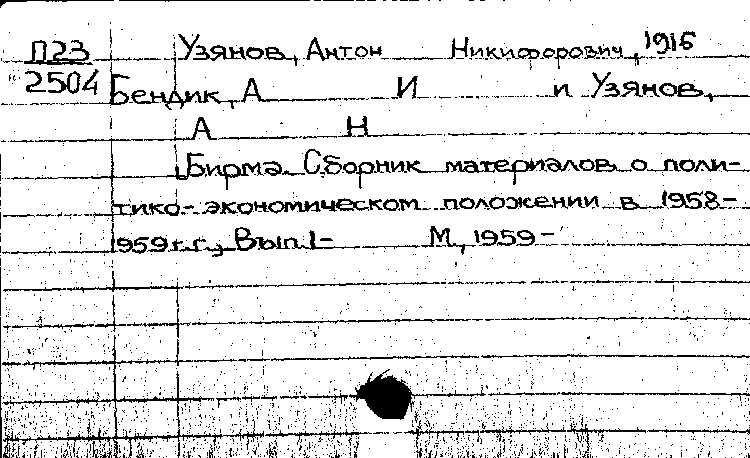 П23 Узянов, Антон Никифорович, 1916
2504 Бендик, А И и Узянов,
А Н
Бирма. Сборник материалов о поли-
тико-экономическом положении в 1958-
1959 г.г., Вып. 1- М, 1959-